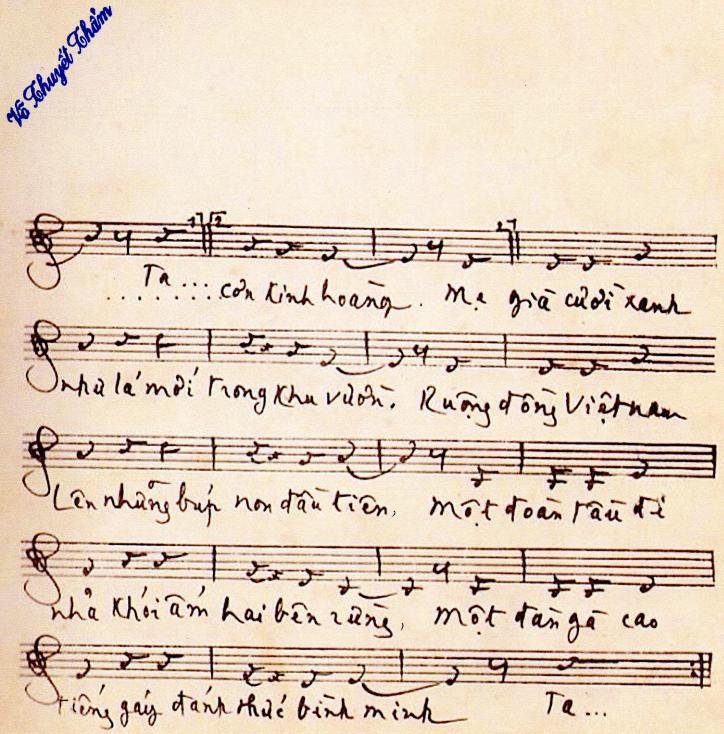 Võ Thuyết Thẩm
1 2 2
Ta... cơn kinh hoàng. Mẹ già cười xanh
như lá mới trong khu vườn. Ruộng đồng Việt nam
Lên những búp non đầu tiên, Một đoàn tàu đi
nhả khói ấm hai bên rừng, một đàn gà cao
tiếng gáy đánh thức bình minh Ta...